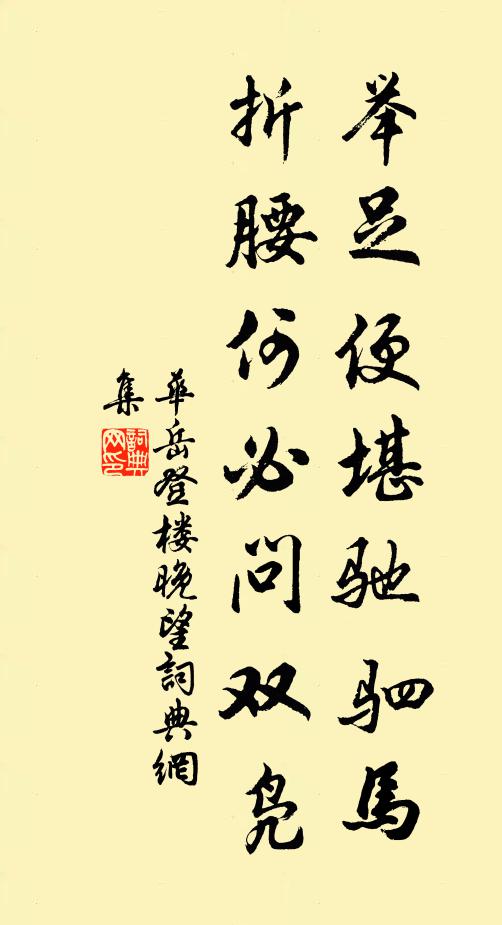 举足便堪驰驷馬
折腰何必问双凫
華岳登楼晚望詞典網
集
詞典网印